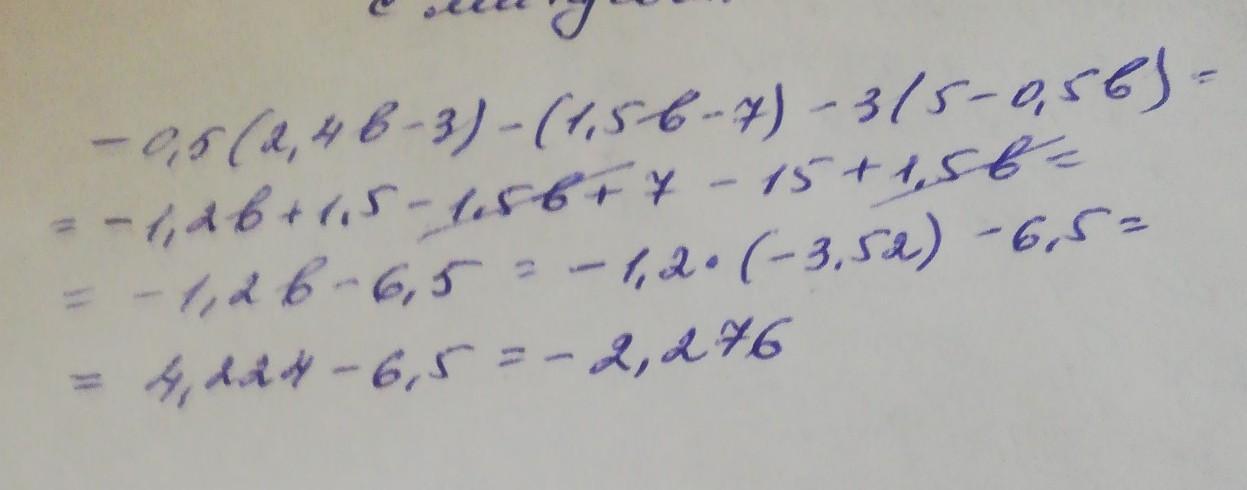 -0,5(2,4в-3)-(1,5в-7)-3(5-0,5в)=
=-1,2в+1.5-1.5в+7-15+1,5в=
=-1,2в-6,5=-1,2·(-3,52)-6,5=
=4,224-6,5=-2,276